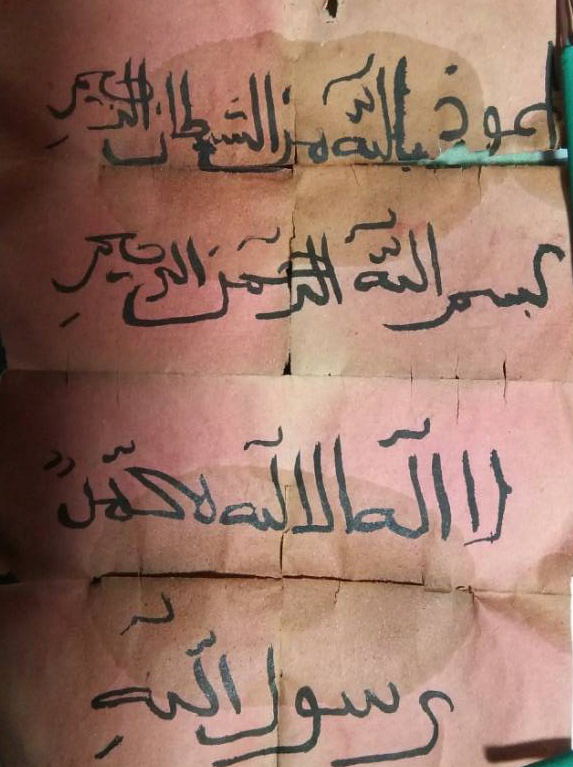 اعوذ بالله من الشيطان الرجيم
بسم الله الرحمن الرحيم
لا اله الا الله محمدٌ
رسول اللهِ